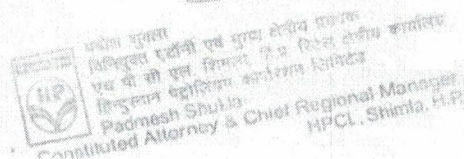 पद्मेश शुक्ला
विनियुक्त एटॉर्नी एवं मुख्य क्षेत्रीय प्रबन्धक
एच पी सी एल, शिमला, हि.प्र. रिटेल क्षेत्रीय कार्यालय
हिन्दुस्तान पेट्रोलियम कारपोरेशन लिमिटेड
Padmesh Shukla
Constituted Attorney & Chief Regional Manager
HPCL, Shimla, H.P.
HP